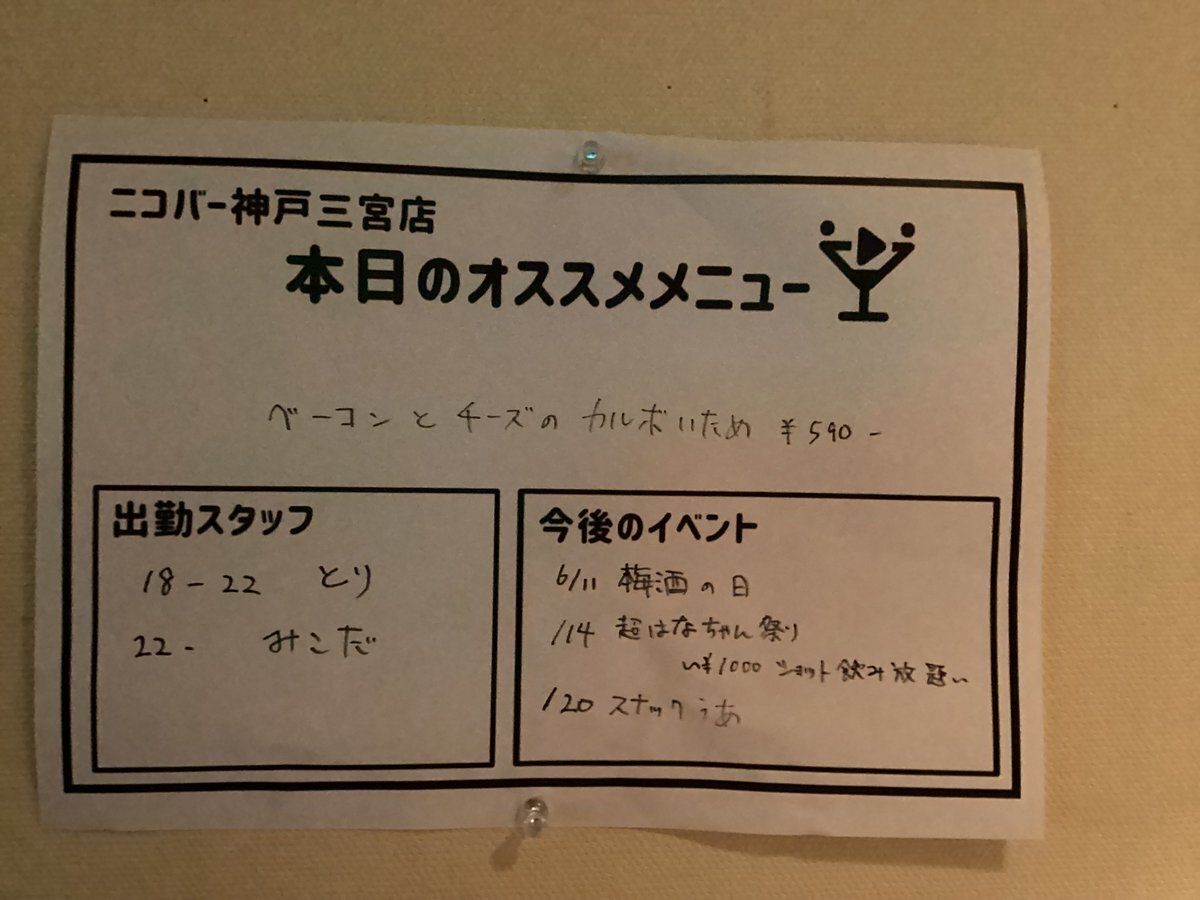 ニコバー神戸三宮店
本日のオススメメニュー
ベーコンとチーズのカルボいため ¥590-
出勤スタッフ
18-22 とり
22- みこだ
今後のイベント
6/11 梅酒の日
/14 超はなちゃん祭り
〃¥1000 ショット飲み放題〃
/20 スナックうあ